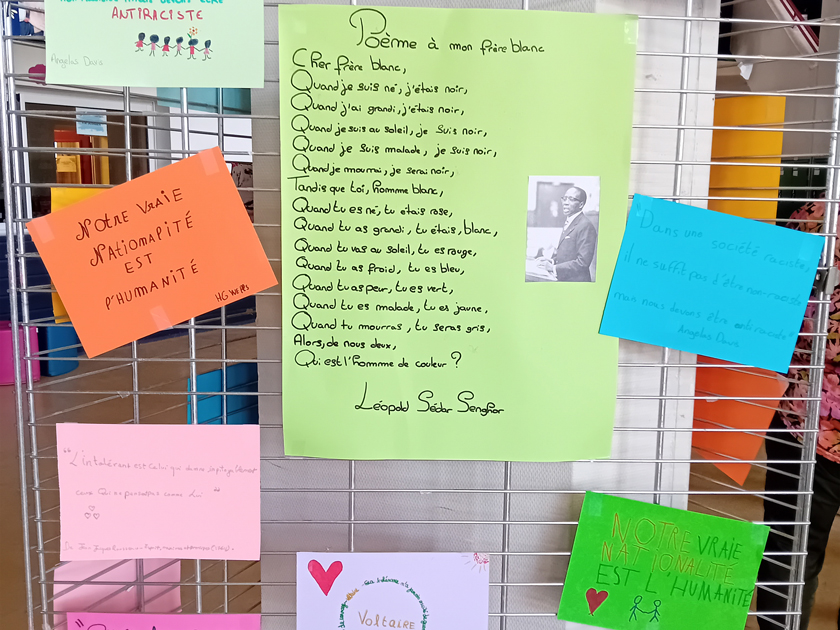 ANTIRACISTE
Angelas Davis
Poème à mon frère blanc
Cher frère blanc,
Quand je suis né, j'étais noir,
Quand j'ai grandi, j'étais noir,
Quand je suis au soleil, je suis noir,
Quand je suis malade, je suis noir,
Quand je mourrai, je serai noir,
Tandis que toi, homme blanc,
Quand tu es né, tu étais rose,
Quand tu as grandi, tu étais, blanc,
Quand tu vas au soleil, tu es rouge,
Quand tu as froid, tu es bleu,
Quand tu as peur, tu es vert,
Quand tu es malade, tu es jaune,
Quand tu mourras, tu seras gris,
Alors, de nous deux,
Qui est l'homme de couleur ?
Léopold Sédar Senghor
NOTRE VRAIE
NATIONALITÉ
EST
l'HUMANITÉ
HG WELLS
"Dans une société raciste,
il ne suffit pas d'être non raciste
mais nous devons être antiraciste"
Angelas Davis
"L'intolérant est celui qui
comme lui. "
NOTRE VRAIE
NATIONALITÉ
EST L'HUMANITÉ
Voltaire